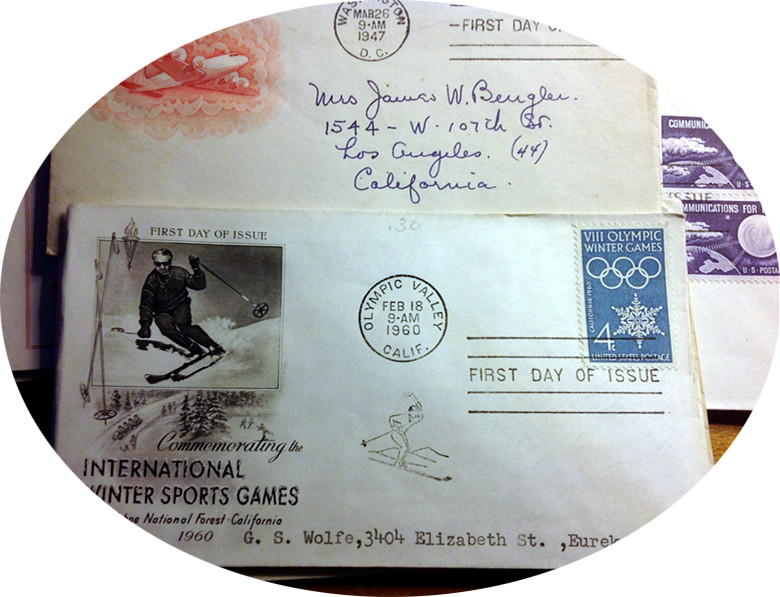 WASHINGTON
MAR 26
9-AM
1947
D. C.
FIRST DAY
Mrs James W. Bengler.
1544 - W. 107th St.
Los Angeles. (44)
California.
COMMUNIC
U·S·
ISSUE
MMUNICATIONS FOR
U·S·POSTA
.30
FIRST DAY OF ISSUE
OLYMPIC VALLEY
FEB 18
9-AM
1960
CALIF.
VIII OLYMPIC
WINTER GAMES
CALIFORNIA 1960
4c
UNITED STATES POSTAGE
FIRST DAY OF ISSUE
Commemorating the
INTERNATIONAL
WINTER SPORTS GAMES
hoe National Forest·California
1960
G. S. Wolfe,3404 Elizabeth St. ,Eurek